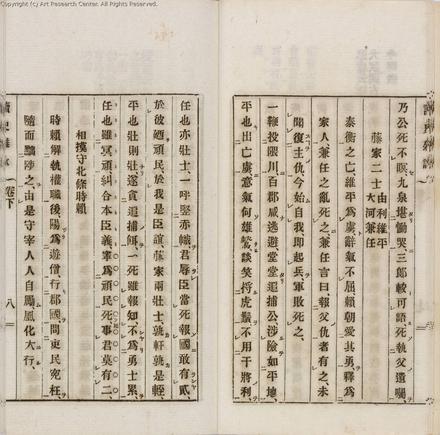 Copyright (c) Art Research Center. All Rights Reserved.
乃公死不瞑九泉堪慟哭三郎較可語死執父遺囑
藤家二士 由利維平 大河兼任
泰衡之亡維平爲虜辭氣不屈賴朝愛其勇釋爲
家人兼任之亂死之兼任言曰報父仇者有之未
聞復主仇今始自我即起兵軍敗死之
一鞭投隈川百郡咸逃避堂堂追捕公涉險如平地
平也出亡虜意氣何雄鷙談笑捋虎鬚不用干將利
任也亦壯士一呼竪赤幟君辱臣當死報國敢有貳
於彼廼頑民於我是臣誼藤家兩壯士孰軒孰是輊
平也壯則壯遂貪追捕餌一死雖報知不爲勇士累
任也雖冥頑糾合本臣義寧爲頑民死事君莫有二
相摸守北條時賴
時賴解執權職後陽爲遊僧行郡國問吏民宄枉
隨而黜陟之由是守宰人人自勵風化大行
卷下
八